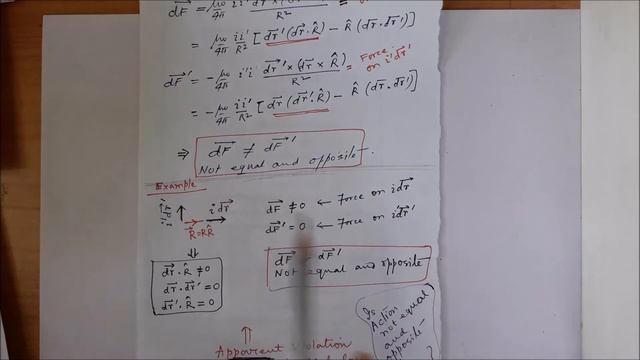 = μ₀/4π ii'/R² [d⃗r'(d⃗r·R̂) − R̂(d⃗r·d⃗r')]
d⃗F' = −μ₀/4π i'i d⃗r'×(d⃗r×R̂)/R² = Force on i'd⃗r'
= −μ₀/4π ii'/R² [d⃗r(d⃗r'·R̂) − R̂(d⃗r·d⃗r')]
⇒ d⃗F ≠ d⃗F'
Not equal and opposite.
Example
i'd⃗r' ↑ i d⃗r →
R⃗=RR̂
⇓
d⃗r·R̂ ≠0
d⃗r·d⃗r' =0
d⃗r'·R̂ =0
d⃗F ≠0 ← Force on i d⃗r
d⃗F' =0 ← Force on i'd⃗r'
d⃗F d⃗F'
Not equal and opposite
Is
Action
not equal
and
opposite
↑
Apparent